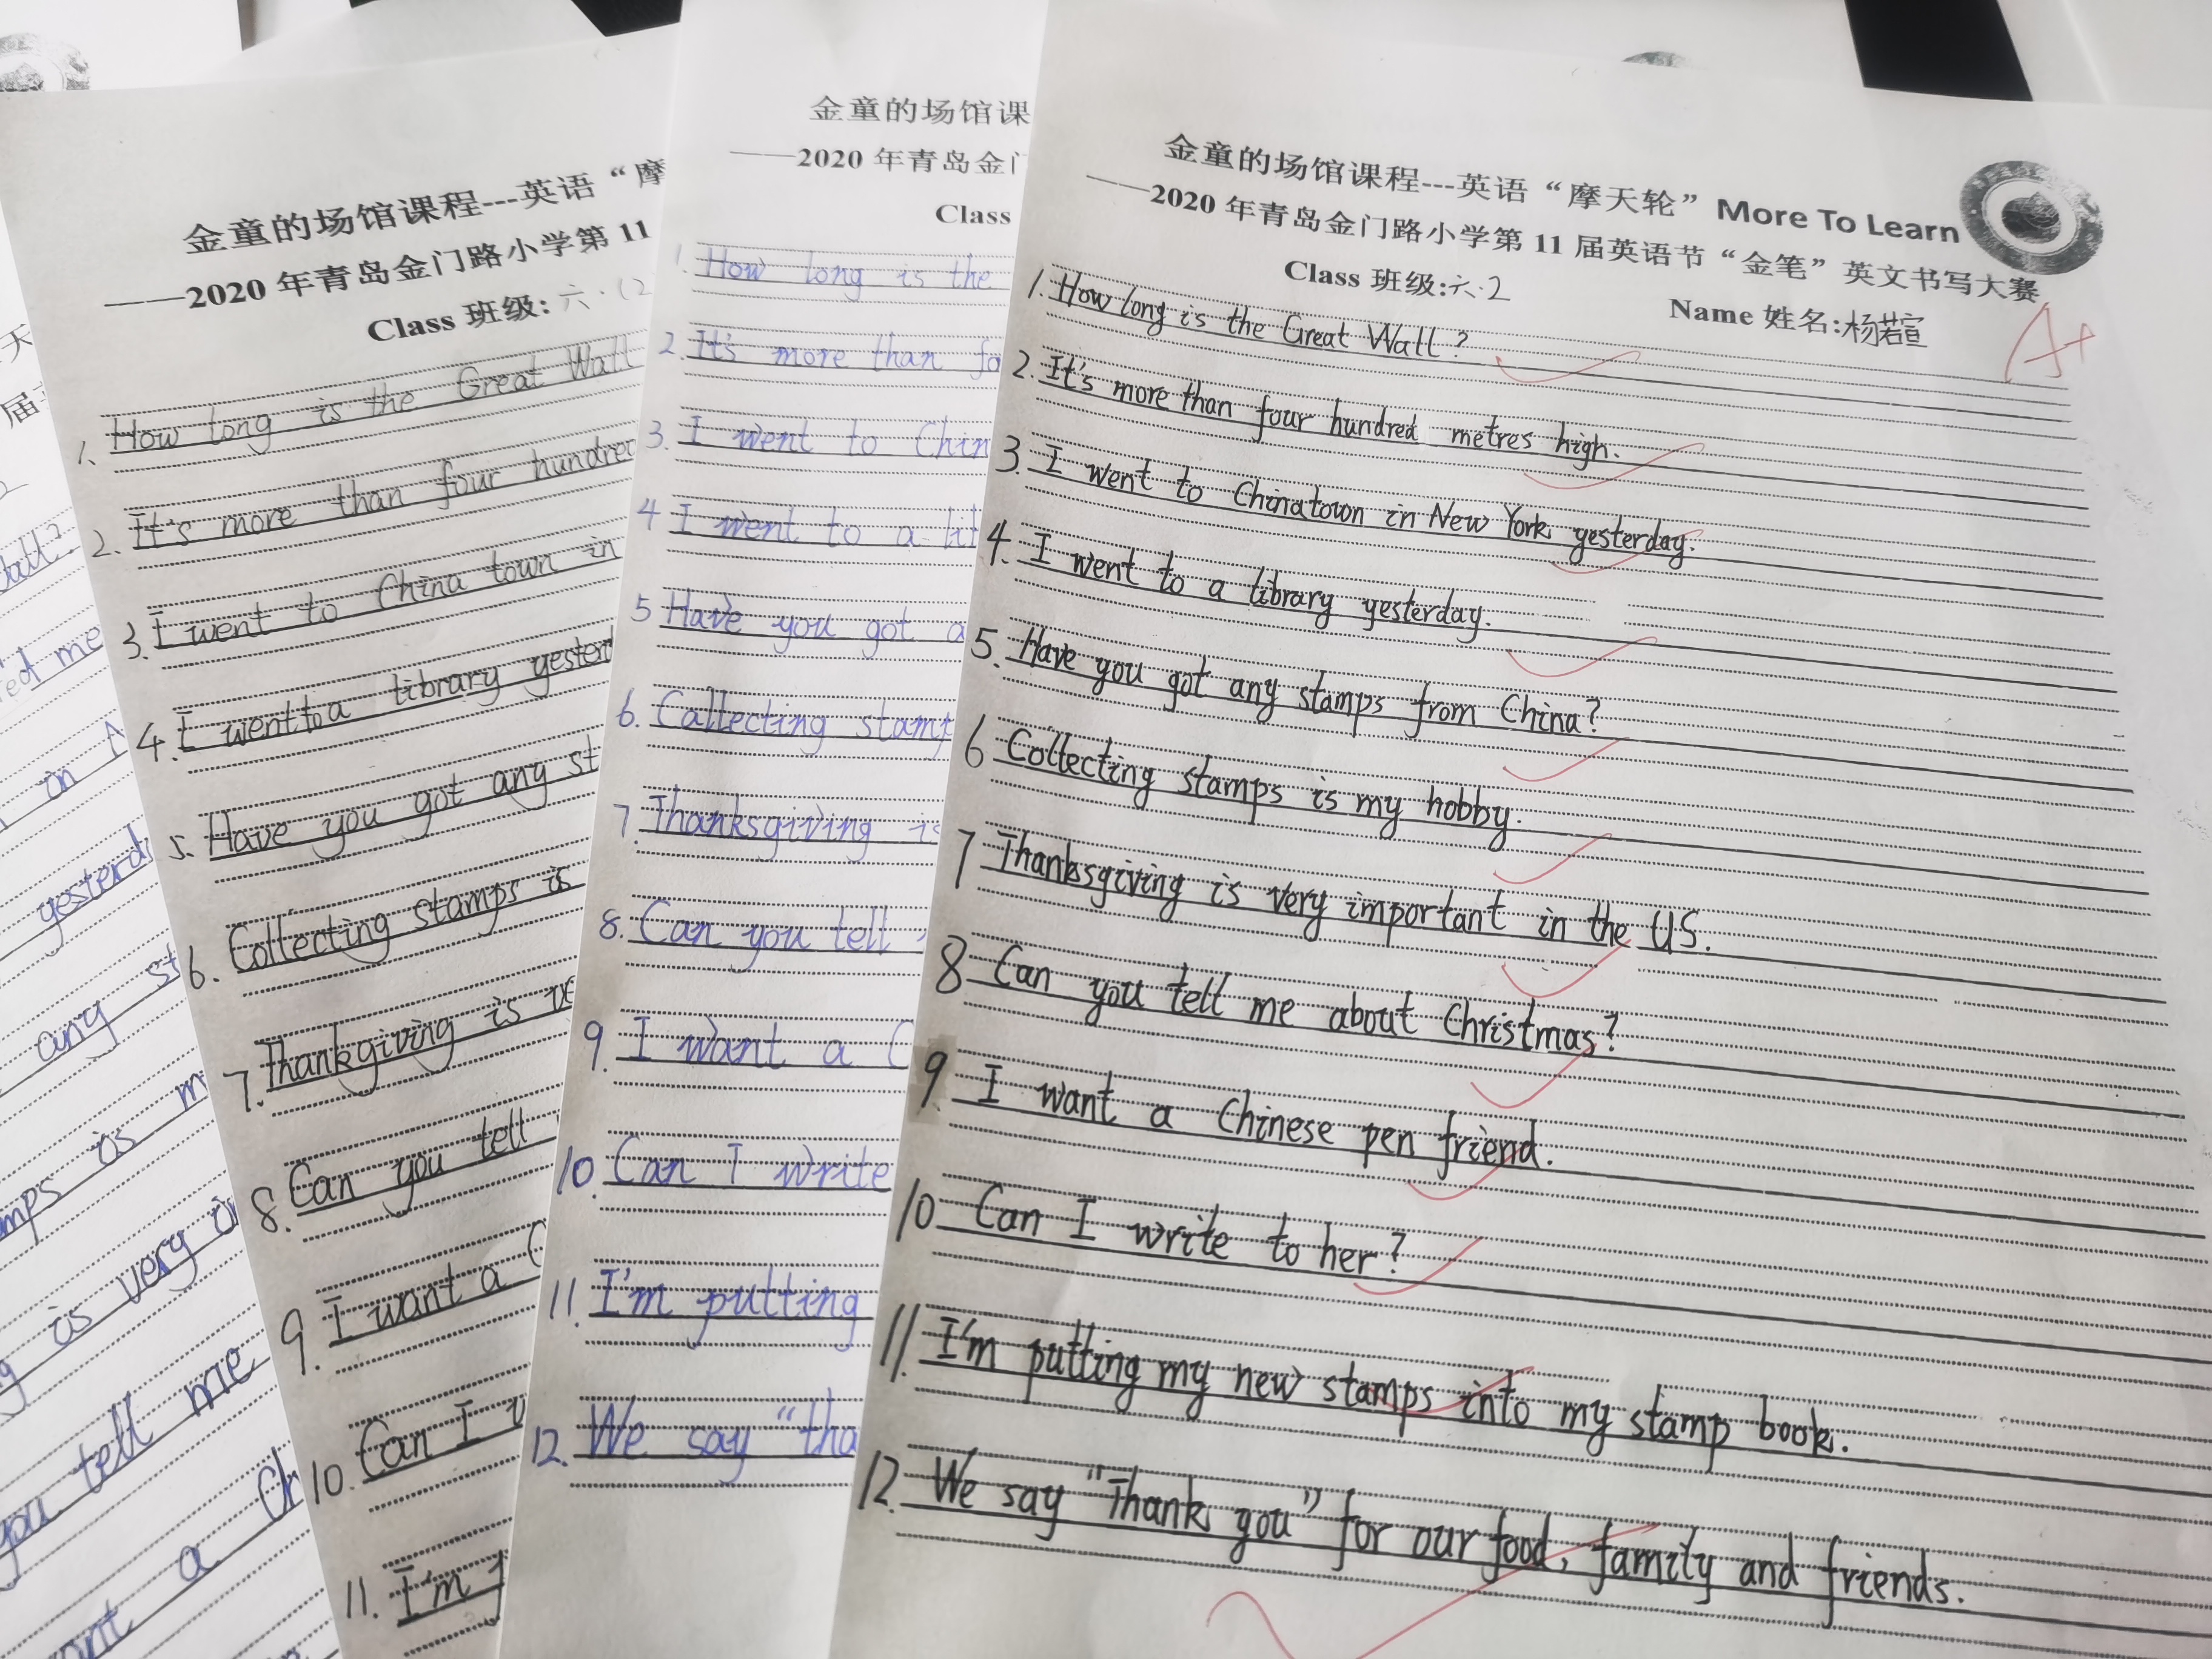 金童的场馆课程---英语“摩天轮”More To Learn
——2020 年青岛金门路小学第 11 届英语节“金笔”英文书写大赛
Class 班级:六.2 Name 姓名:杨若宣
A+
1. How long is the Great Wall?
2. It's more than four hundred metres high.
3. I went to Chinatown in New York yesterday.
4. I went to a library yesterday.
5. Have you got any stamps from China?
6 Collecting stamps is my hobby.
7 Thanksgiving is very important in the US.
8 Can you tell me about Christmas?
9. I want a Chinese pen friend.
10 Can I write to her?
11. I'm putting my new stamps into my stamp book.
12. We say "Thank you" for our food, family and friends.
金童的场馆课
——2020 年青岛金门
Class
1. How long is the
2. It's more than fo
3. I went to Chin
4 I went to a lib
5 Have you got a
6. Callecting stamp
7 Thanksgiving is
8. Can you tell
9. I want a C
10. Can I write
11 I'm putting
12. We say "tha
金童的场馆课程---英语“摩
——2020 年青岛金门路小学第 11
Class 班级: 六.(2
1. How long is the Great Wall
2. It's more than four hundred
3. I went to China town in
4. I went to a library yesterd
5. Have you got any st
6. Collecting stamps is
7. Thankgiving is ve
8. Can you tell
9. I want a C
10. Can I w
11. I'm
天
届
2
Wall?
red me
in
yesterd
any st
mps is m
g is very i
you tell me
ant a Ch